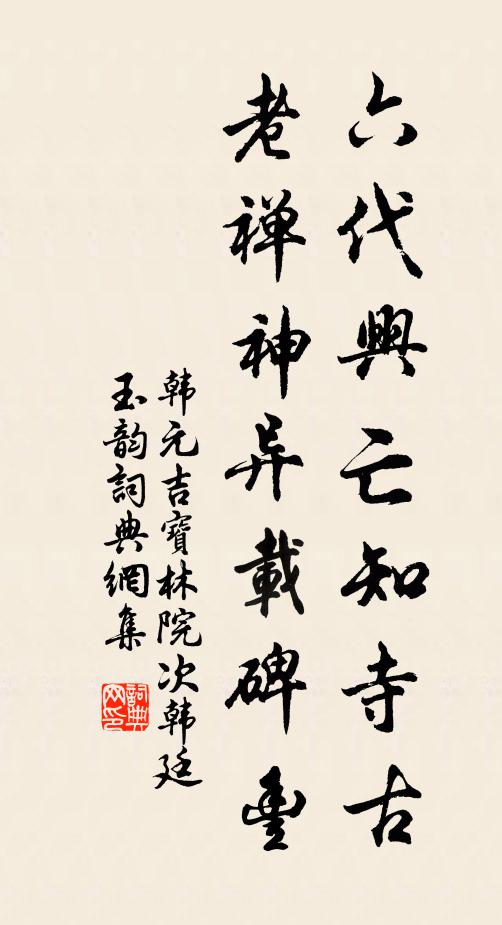 六代興亡知寺古
老禅神异載碑豊
韩元吉寶林院次韩廷
玉韵詞典網集
詞典
网印